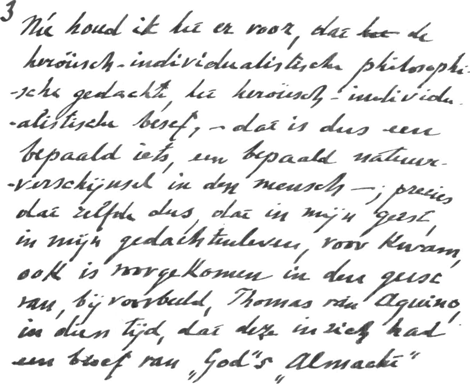 3
Nú houd ik het er voor, dat het de
heroïsch-individualistische philosophi-
-sche gedachte, het heroïsch-individu-
-alistische besef, – dat is dus een
bepaald iets, een bepaald natuur-
-verschijnsel in den mensch –; precies
dat zelfde dus, dat in mijn geest,
in mijn gedachtenleven, voor kwam,
ook is voorgekomen in den geest
van, bij voorbeeld, Thomas van Aquino,
in dien tijd, dat deze in zich had
een besef van „God"s „Almacht"